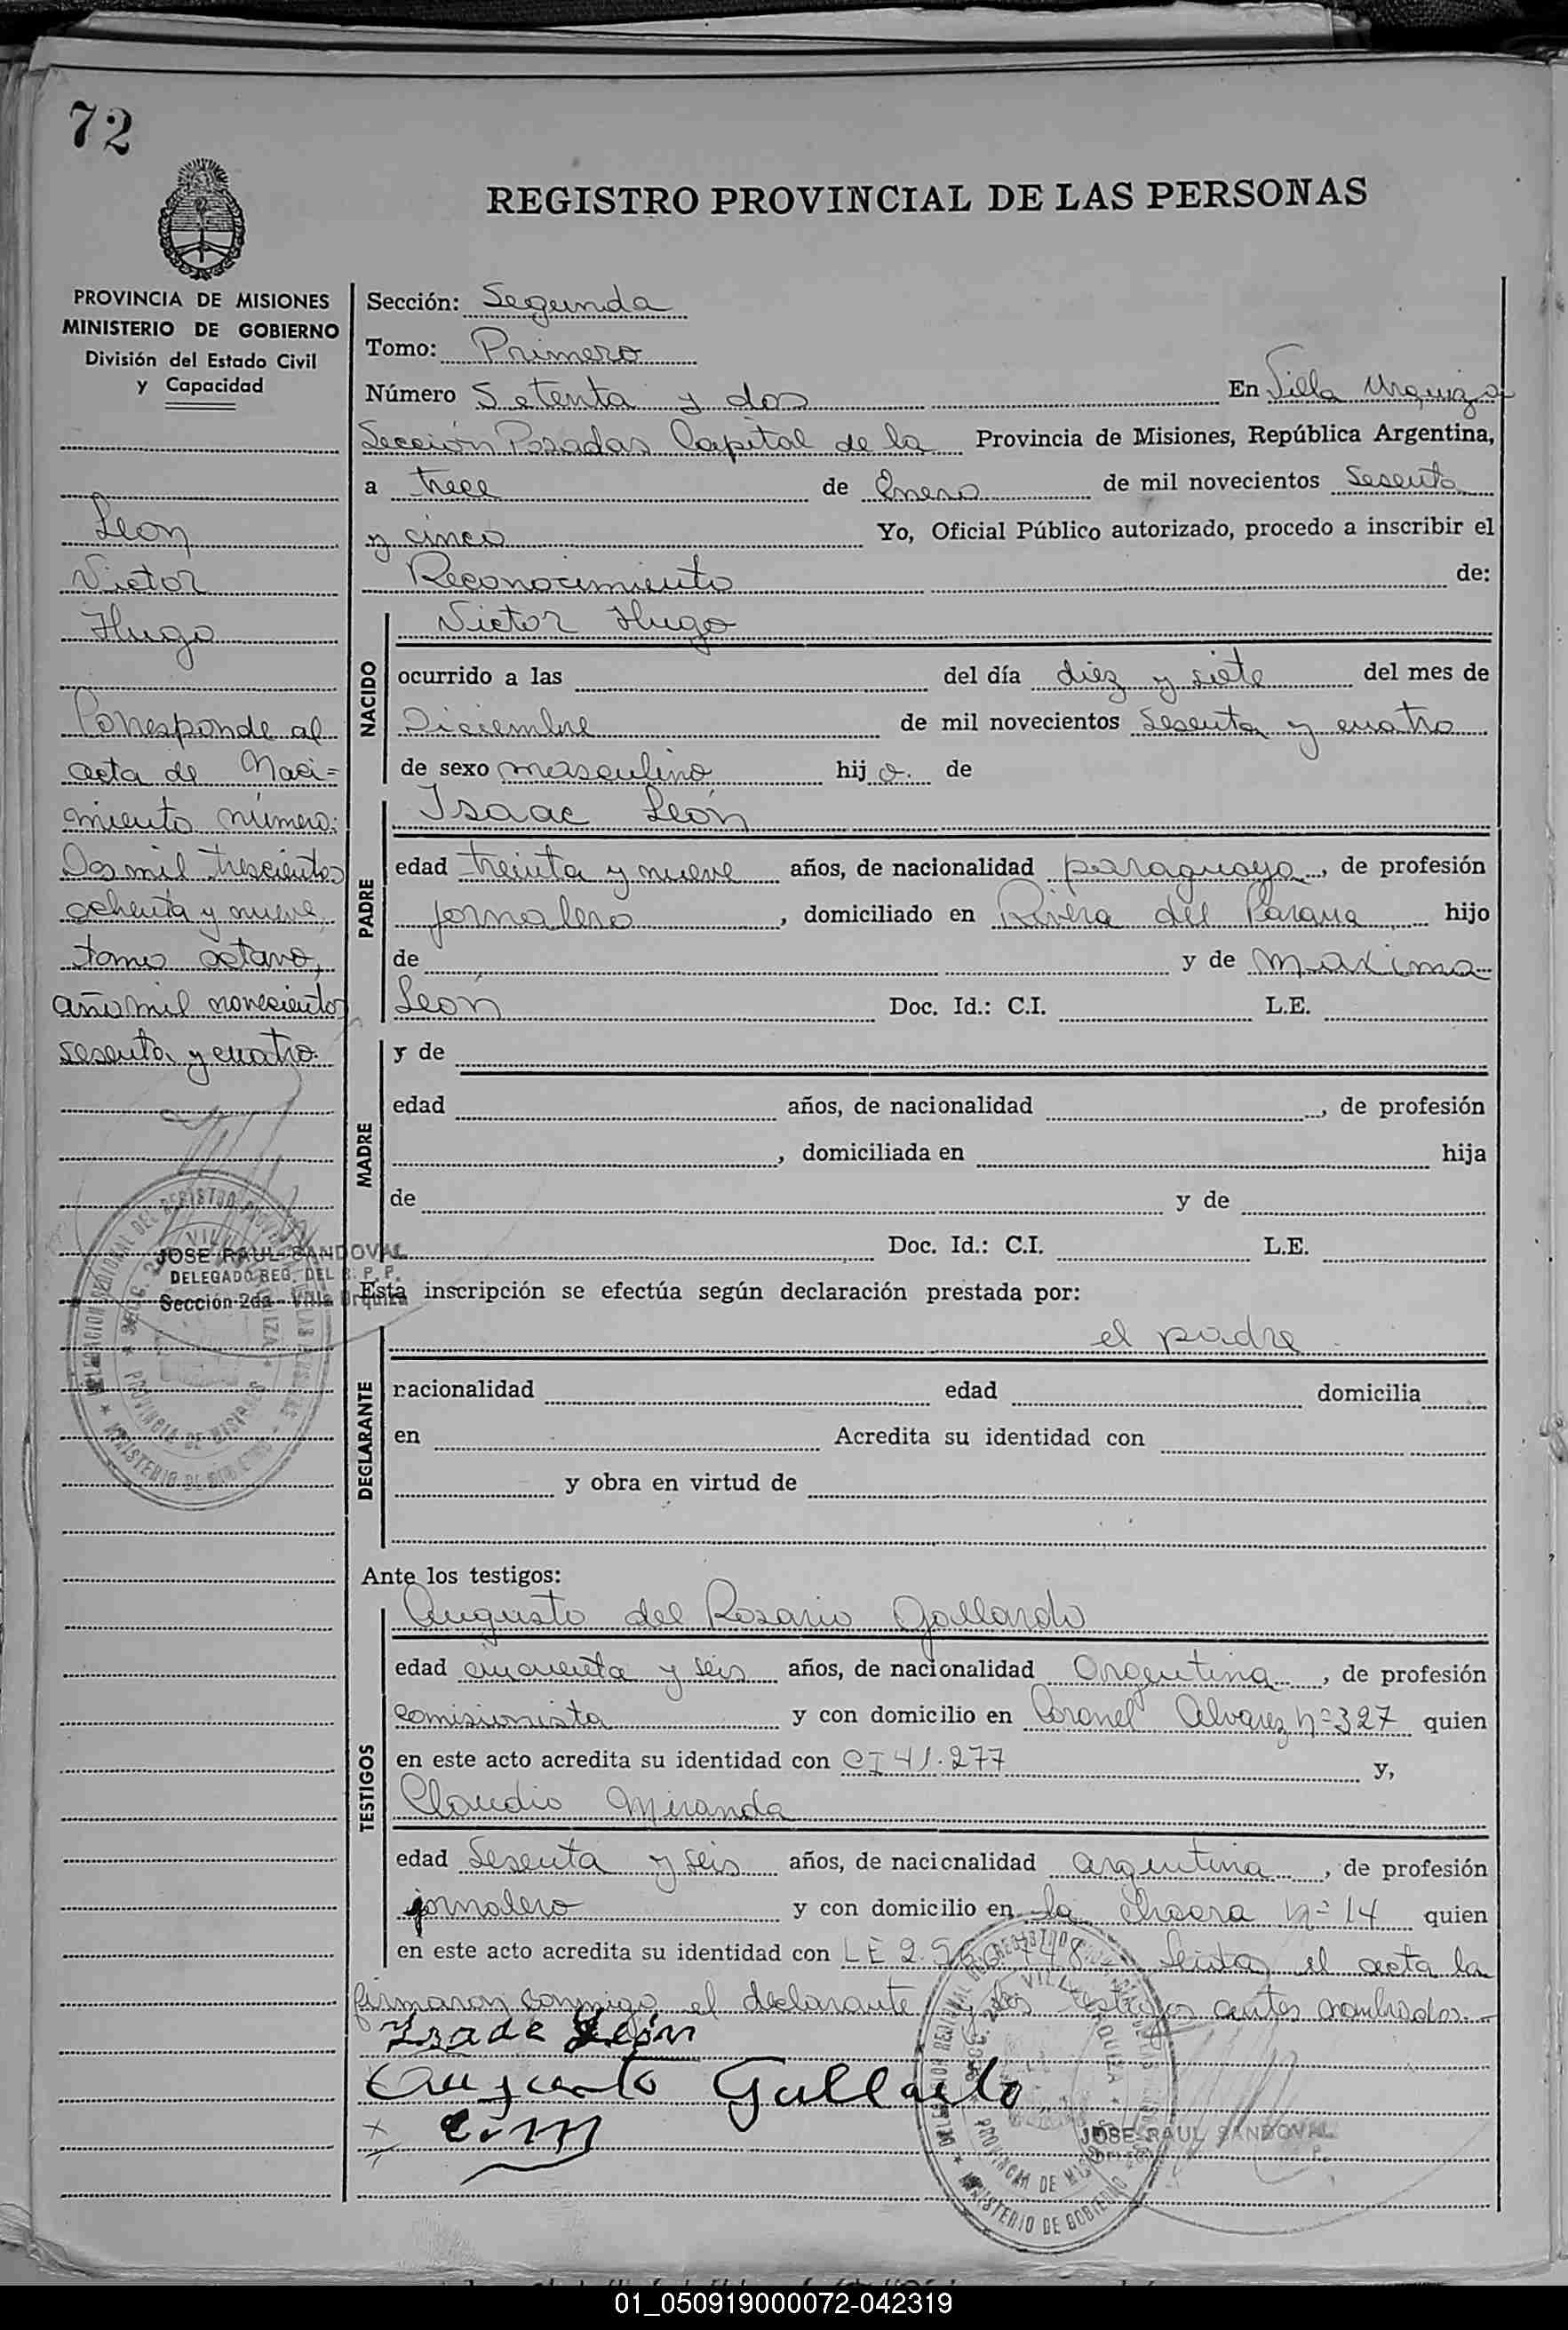 72
REGISTRO PROVINCIAL DE LAS PERSONAS
PROVINCIA DE MISIONES
MINISTERIO DE GOBIERNO
División del Estado Civil
y Capacidad
Leon
Victor
Hugo
Corresponde al
acta de Naci=
miento número:
Dos mil trescientos
ochenta y nueve,
tomo octavo,
año mil novecientos
sesenta y cuatro.
JOSE RAUL SANDOVAL
DELEGADO REG. DEL R. P. P.
Sección 2da - Villa Urquiza
Sección: Segunda
Tomo: Primero
Número Setenta y dos En Villa Urquiza
Sección Posadas Capital de la Provincia de Misiones, República Argentina,
a trece de Enero de mil novecientos Sesenta
y cinco Yo, Oficial Público autorizado, procedo a inscribir el
Reconocimiento de:
NACIDO
Victor Hugo
ocurrido a las del día diez y siete del mes de
Diciembre de mil novecientos sesenta y cuatro
de sexo masculino hijo de
PADRE
Isaac León
edad treinta y nueve años, de nacionalidad paraguaya, de profesión
jornalero, domiciliado en Rivera del Parana hijo
de y de Maxima
León Doc. Id.: C.I. L.E.
MADRE
y de
edad años, de nacionalidad , de profesión
, domiciliada en hija
de y de
Doc. Id.: C.I. L.E.
Esta inscripción se efectúa según declaración prestada por:
DECLARANTE
el padre
nacionalidad edad domicilia
en Acredita su identidad con
y obra en virtud de
Ante los testigos:
TESTIGOS
Augusto del Rosario Gallardo
edad cincuenta y seis años, de nacionalidad Argentina, de profesión
comisionista y con domicilio en Coronel Alvarez nº 327 quien
en este acto acredita su identidad con CI 41.277 y,
Claudio Miranda
edad Sesenta y seis años, de nacionalidad argentina, de profesión
jornalero y con domicilio en la chacra nº 14 quien
en este acto acredita su identidad con LE el acta la
firmaron conmigo el declarante y los testigos antes nombrados.-
León
Augusto Gallardo
C.M
JOSE RAUL SANDOVAL
01_050919000072-042319